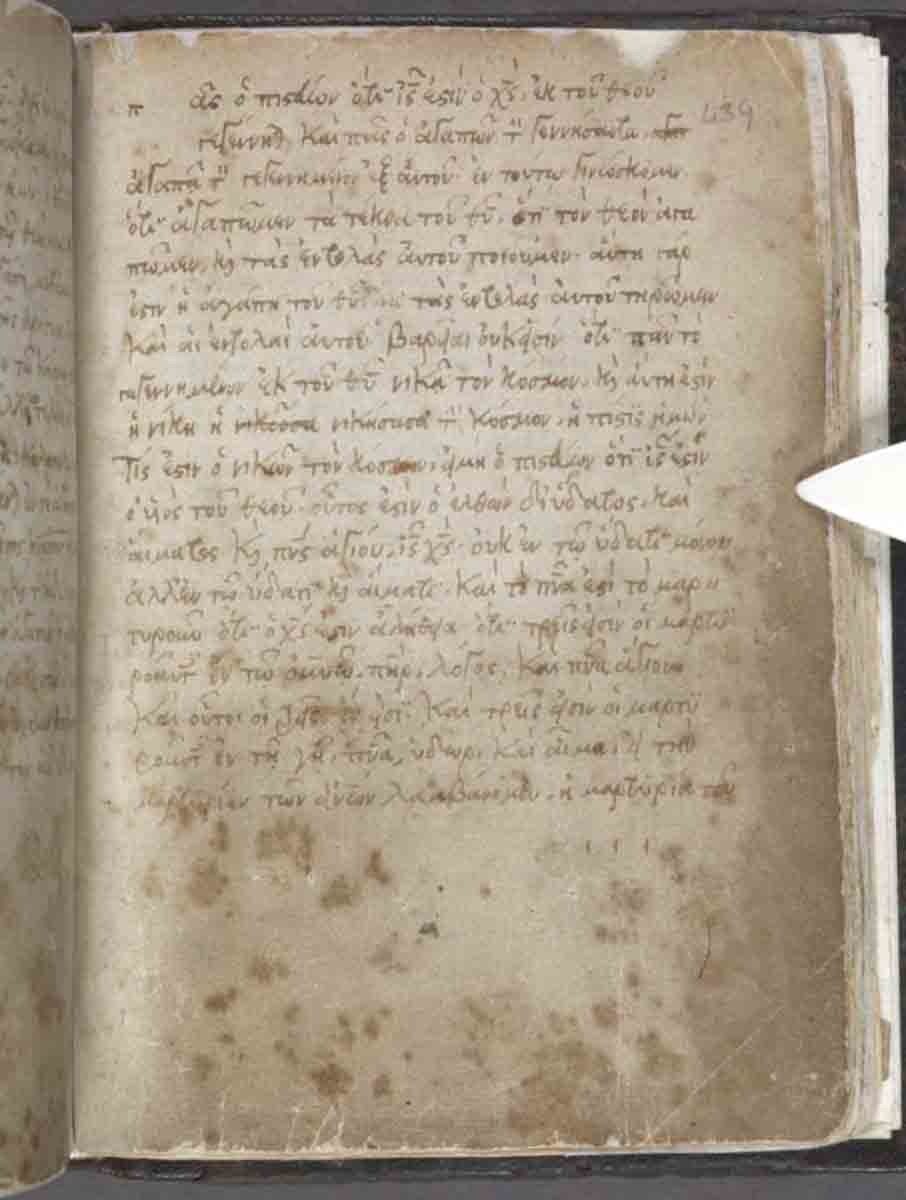 πᾶς ὁ πιστεύων ὅτι ἰς ἐστὶν ὁ χς, ἐκ τοῦ θεοῦ
γεγέννηται καὶ πᾶς ὁ ἀγαπῶν τὸν γεννήσαντα 439
ἀγαπᾷ τὸν γεγεννημένον ἐξ αὐτοῦ· ἐν τούτω γινώσκομεν
ὅτι ἀγαπῶμεν τὰ τέκνα τοῦ θυ, ὅταν τὸν θεὸν ἀγα
πῶμεν, καὶ τὰς ἐντολὰς αὐτοῦ ποιούμεν· αὕτη γάρ
ἐστιν ἡ ἀγάπη τοῦ θυ ἵνα τὰς ἐντολὰς αὐτοῦ τηρῶμεν
καὶ αἱ ἐντολαὶ αὐτοῦ βαρεῖαι οὐκ εἰσίν ὅτι πᾶν τὸ
γεγεννημένον ἐκ τοῦ θυ νικᾶ τὸν κόσμον, καὶ αὕτη ἐστὶν
ἡ νίκη ἡ νικήσασα τὸν κόσμον, ἡ πίστις ἡμῶν
Τίς ἐστιν ὁ νικῶν τὸν κόσμον, εἰ μὴ ὁ πιστεύων ὅτι ις ἐστὶν
ὁ υἱὸς τοῦ θεοῦ· οὗτος ἐστὶν ὁ ἐλθὼν δι ὕδατος, καὶ
αἵματος καὶ πνς ἁγίου, ις χς· οὐκ ἐν τῶ ὕδατι μόνον
ἀλλ ἐν τῶ ὕδατι καὶ αἵματι· καὶ τὸ πνα ἐστὶ τὸ μαρ
τυροῦν ὅτι ὁ χς ἐστιν ἀλήθεια ὅτι τρεῖς εἰσὶν οἱ μαρτυ
ροῦντες ἐν τῶ οὐνω, πηρ, λόγος, καὶ πνα ἅγιον
καὶ οὗτοι οἱ τρεῖς ἕν εἰσι καὶ τρεῖς εἰσὶν οἱ μαρτυ
ροῦντες ἐν τῆ γῆ, πνα, ὕδωρ, καὶ αἷμα, εἰ τὴν
μαρτυρίαν τῶν ἀνων λαμβάνομεν, ἡ μαρτυρία τοῦ